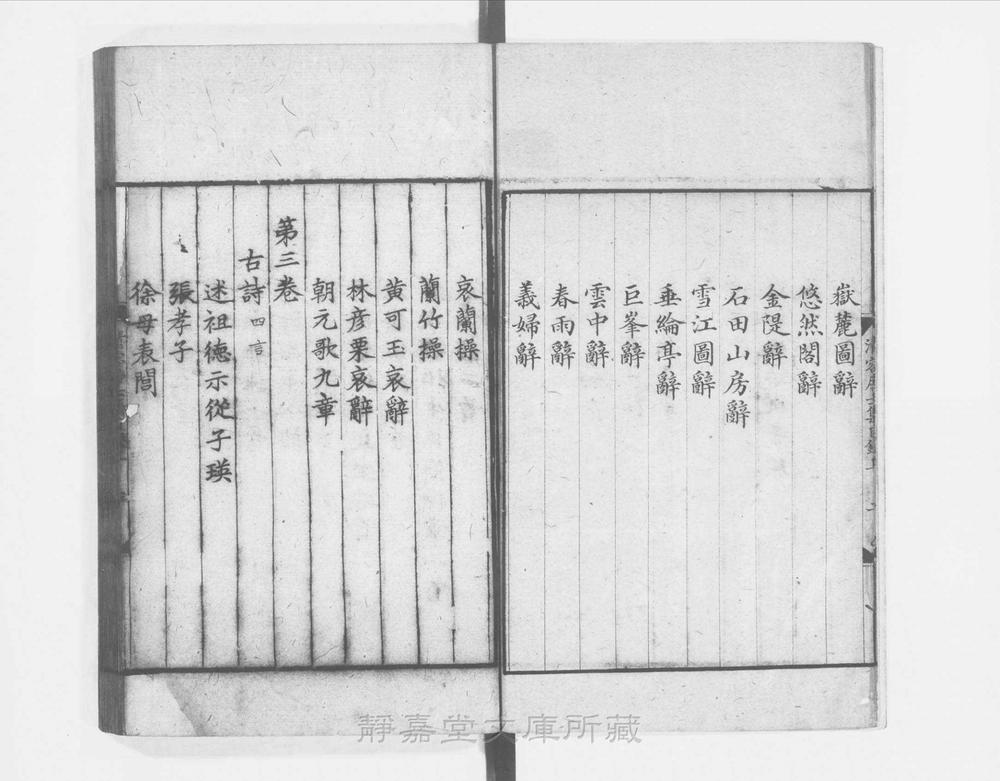 嶽麓圖辭
悠然閣辭
金隄辭
石田山房辭
雪江圖辭
垂綸亭辭
巨峯辭
雲中辭
春雨辭
義婦辭
哀蘭操
蘭竹操
黄可玉哀辭
林彦栗哀辭
朝元歌九章
第三卷
古詩四言
述祖徳示從子瑛
張孝子
徐母表閭
靜嘉堂文庫所藏